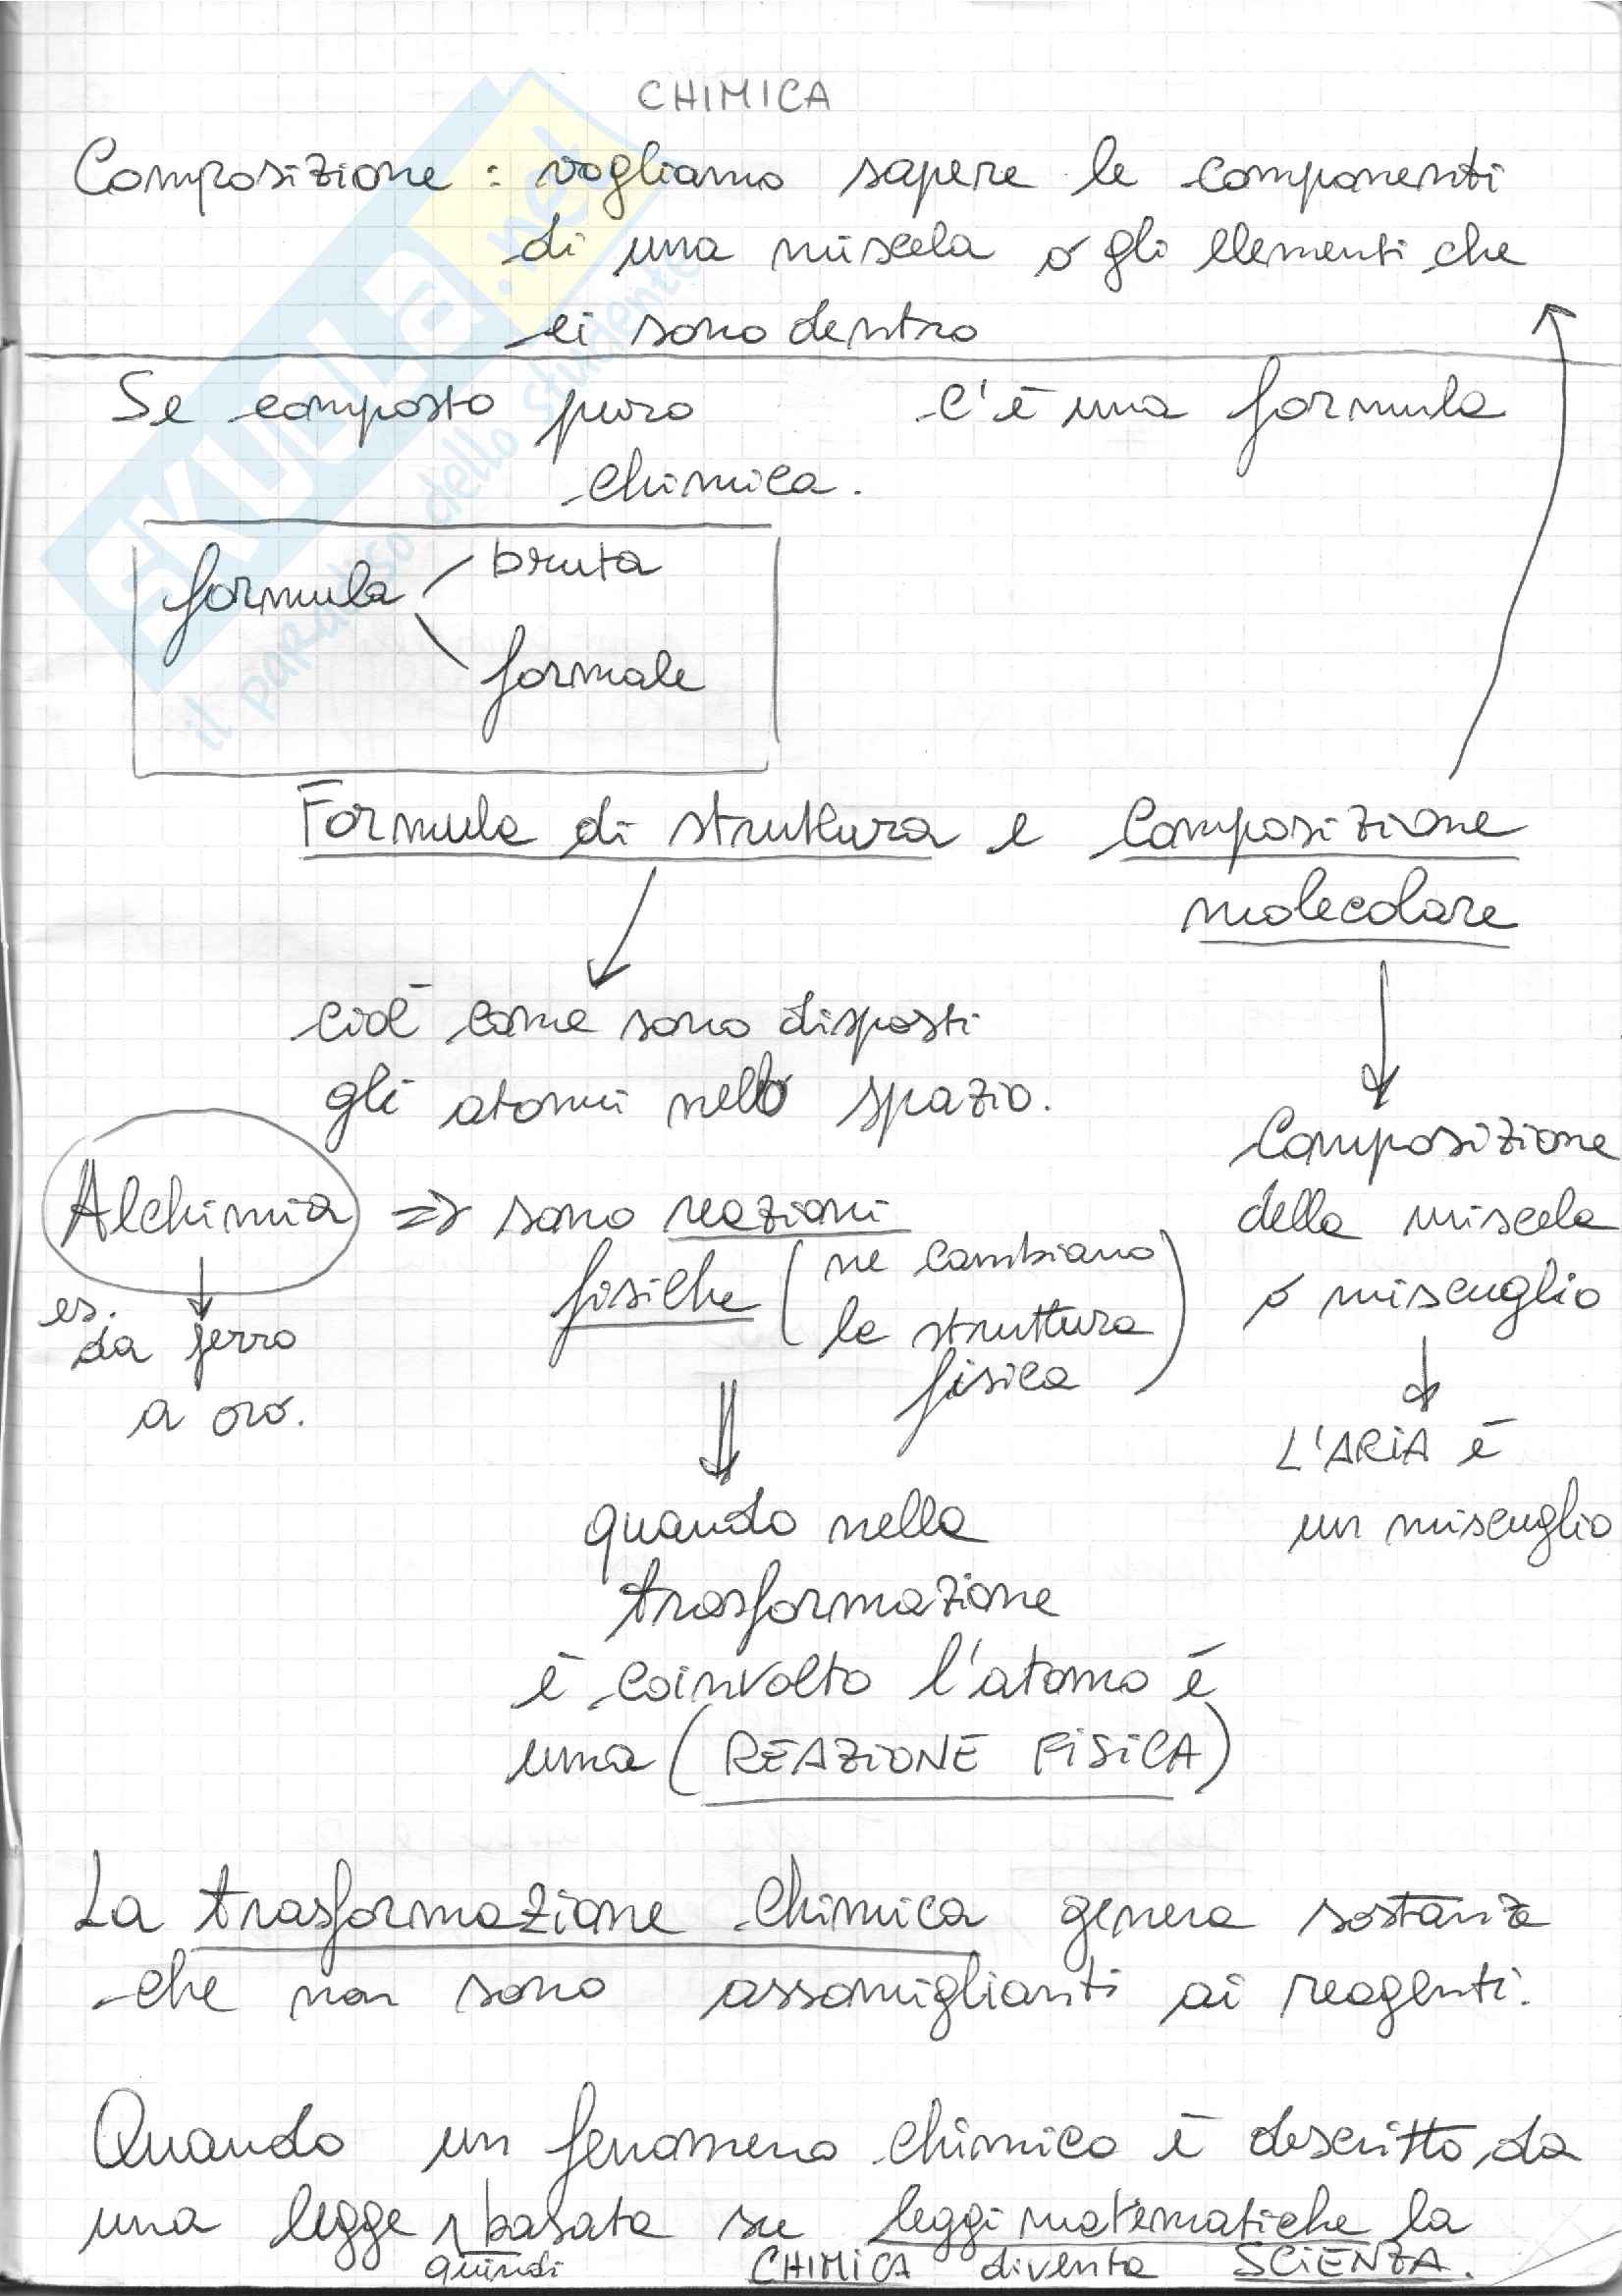 CHIMICA
Composizione : vogliamo sapere le componenti
di una miscela o gli elementi che
ci sono dentro
Se composto puro c'è una formula
chimica.
formula bruta
formale
Formula di struttura e composizione
molecolare
cioè come sono disposti
gli atomi nello spazio.
Composizione
della miscela
o miscuglio
L'ARIA è
un miscuglio
Alchimia => sono reazioni
fisiche (ne cambiano
la struttura
fisica)
es.
da ferro
a oro.
quando nella
trasformazione
è coinvolto l'atomo è
una (REAZIONE FISICA)
La trasformazione chimica genera sostanze
che non sono assomiglianti ai reagenti.
Quando un fenomeno chimico è descritto da
una legge basata su leggi matematiche la
quindi CHIMICA diventa SCIENZA.
SKUOLA.net
il paradiso dello studente